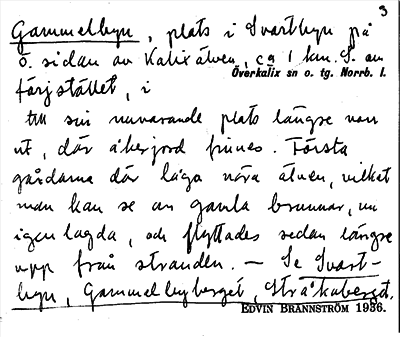 3
Gammelbyn, plats i Svartbyn på
ö. sidan av Kalix älven, ca 1 km. S. om
Överkalix sn o. tg. Norrb. l.
färjstället, i
till sin nuvarande plats längre von
ut, där åkerjord finnes. Första
gårdarna där lågo nära älven, vilket
man kan se av gamla brunnar, nu
igenlagda, och flyttades sedan längre
upp från stranden. — Se Svart-
byn, Gammelbyberget, Stråkaberget.
EDVIN BRÄNNSTRÖM 1936.